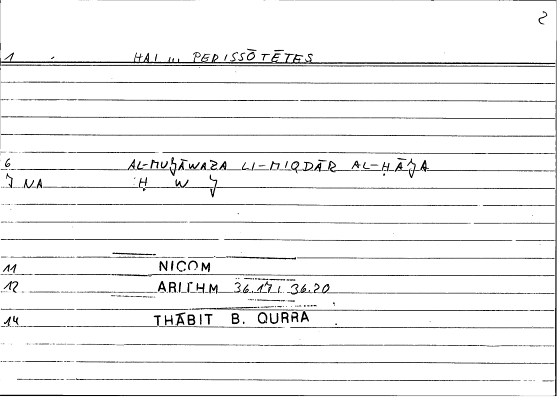 2
1 HAI ... PERISSŌTĒTES
6 AL-MUǦĀWAZA LI-MIQDĀR AL-ḤĀǦA
Ǧ NA Ḥ W Ǧ
11 NICOM
12 ARITHM 36.17; 36.20
14 THĀBIT B. QURRA